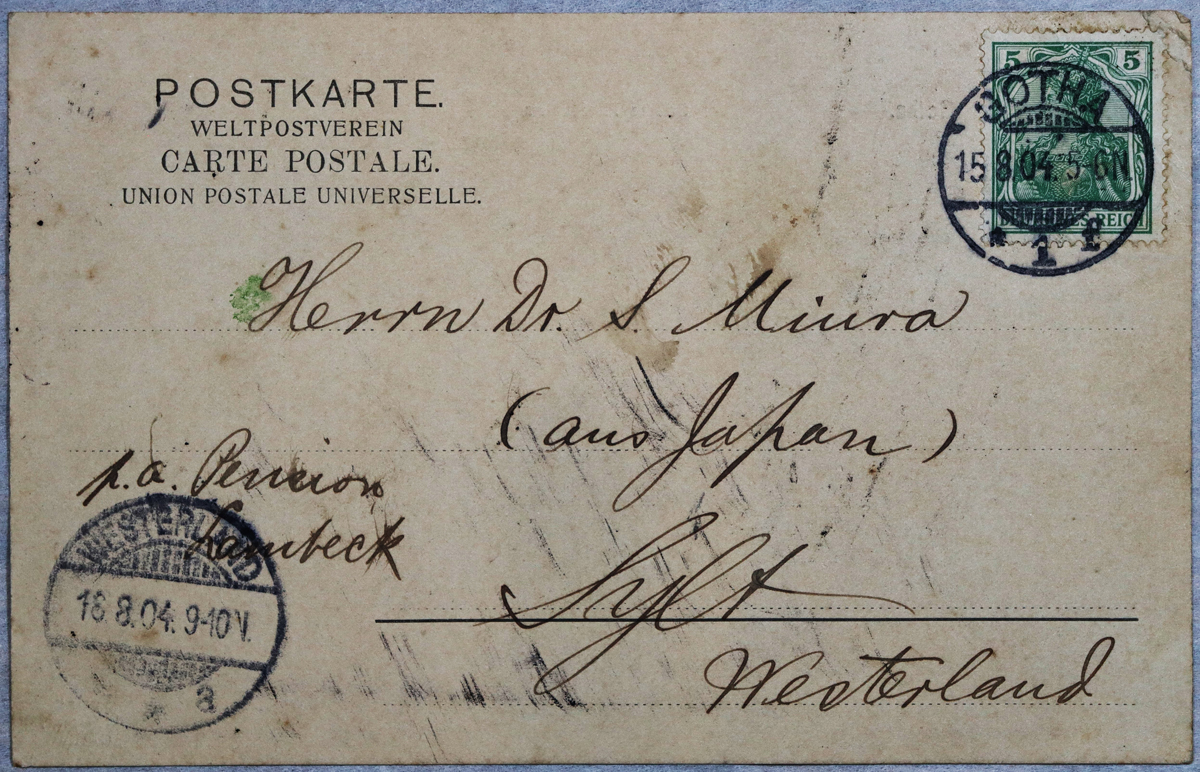 POSTKARTE.
WELTPOSTVEREIN
CARTE POSTALE.
UNION POSTALE UNIVERSELLE.
5 5
DEUTSCHES REICH
GOTHA
15.8.04. 5-6N
* 1 f
Herrn Dr. S. Miura
(aus Japan)
p.a. Pension
Lambeck
Sylt
Westerland
WESTERLAND
16.8.04. 9-10V.
* a